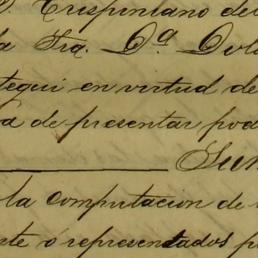 D. Crispiniano de
la Sra. Da. Dolo
tegui en virtud de
a de presentar pod
Sum
la computacion de
te ó representados p